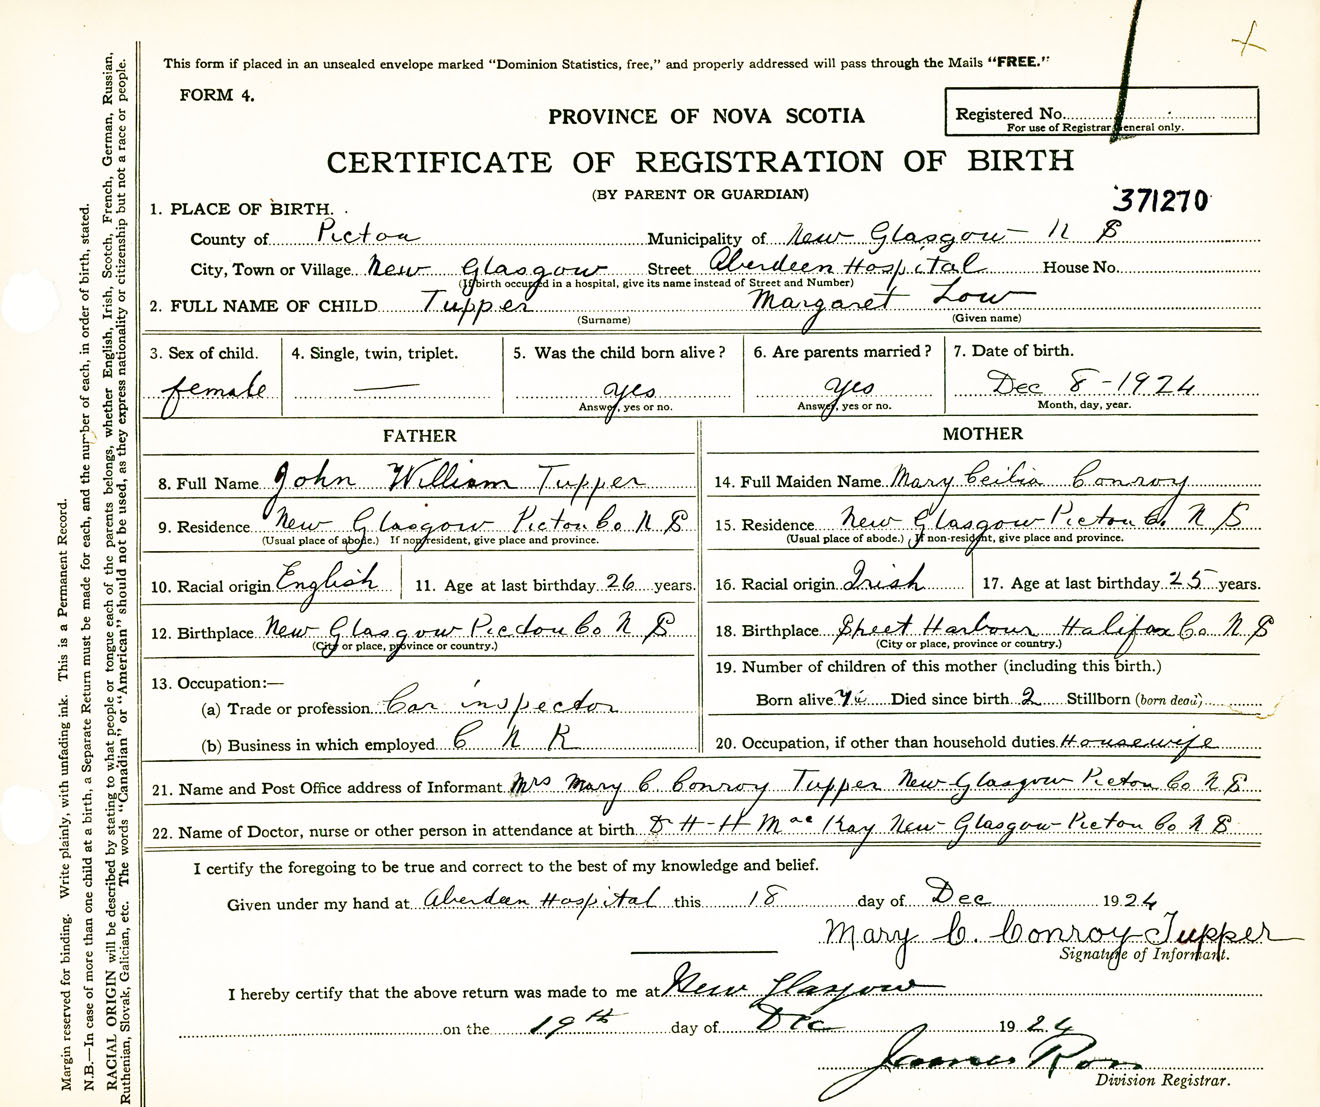 This form if placed in an unsealed envelope marked "Dominion Statistics, free," and properly addressed will pass through the Mails "FREE."
FORM 4.
PROVINCE OF NOVA SCOTIA
Registered No.
For use of Registrar General only.
CERTIFICATE OF REGISTRATION OF BIRTH
(BY PARENT OR GUARDIAN)
371270
1. PLACE OF BIRTH.
County of Pictou Municipality of New Glasgow N S
City, Town or Village New Glasgow Street Aberdeen Hospital House No.
(If birth occurred in a hospital, give its name instead of Street and Number)
2. FULL NAME OF CHILD Tupper Margaret Low
(Surname) (Given name)
3. Sex of child. 4. Single, twin, triplet. 5. Was the child born alive? 6. Are parents married? 7. Date of birth.
female — yes yes Dec 8-1924
Answer, yes or no. Answer, yes or no. Month, day, year.
FATHER MOTHER
8. Full Name John William Tupper 14. Full Maiden Name Mary Ceilia Conroy
9. Residence New Glasgow Pictou Co N S 15. Residence New Glasgow Pictou Co N S
(Usual place of abode.) If nonresident, give place and province. (Usual place of abode.) If non-resident, give place and province.
10. Racial origin English 11. Age at last birthday 26 years. 16. Racial origin Irish 17. Age at last birthday 25 years.
12. Birthplace New Glasgow Pictou Co N S 18. Birthplace Sheet Harbour Halifax Co N S
(City or place, province or country.) (City or place, province or country.)
13. Occupation:— 19. Number of children of this mother (including this birth.)
(a) Trade or profession Car inspector Born alive Died since birth 2 Stillborn (born dead)
(b) Business in which employed C N R 20. Occupation, if other than household duties Housewife
21. Name and Post Office address of Informant Mrs Mary C Conroy Tupper New Glasgow Pictou Co N S
22. Name of Doctor, nurse or other person in attendance at birth Dr H-H MacKay New Glasgow Pictou Co N S
I certify the foregoing to be true and correct to the best of my knowledge and belief.
Given under my hand at Aberdeen Hospital this 18 day of Dec 1924
Mary C. Conroy Tupper
Signature of Informant.
I hereby certify that the above return was made to me at New Glasgow
on the 19th day of Dec 1924
James
Division Registrar.
Margin reserved for binding. Write plainly, with unfading ink. This is a Permanent Record.
N.B.—In case of more than one child at a birth, a Separate Return must be made for each, and the number of each, in order of birth, stated.
RACIAL ORIGIN will be described by stating to what people or tongue each of the parents belongs, whether English, Irish, Scotch, French, German, Russian,
Ruthenian, Slovak, Galician, etc. The words "Canadian" or "American" should not be used, as they express nationality or citizenship but not a race or people.